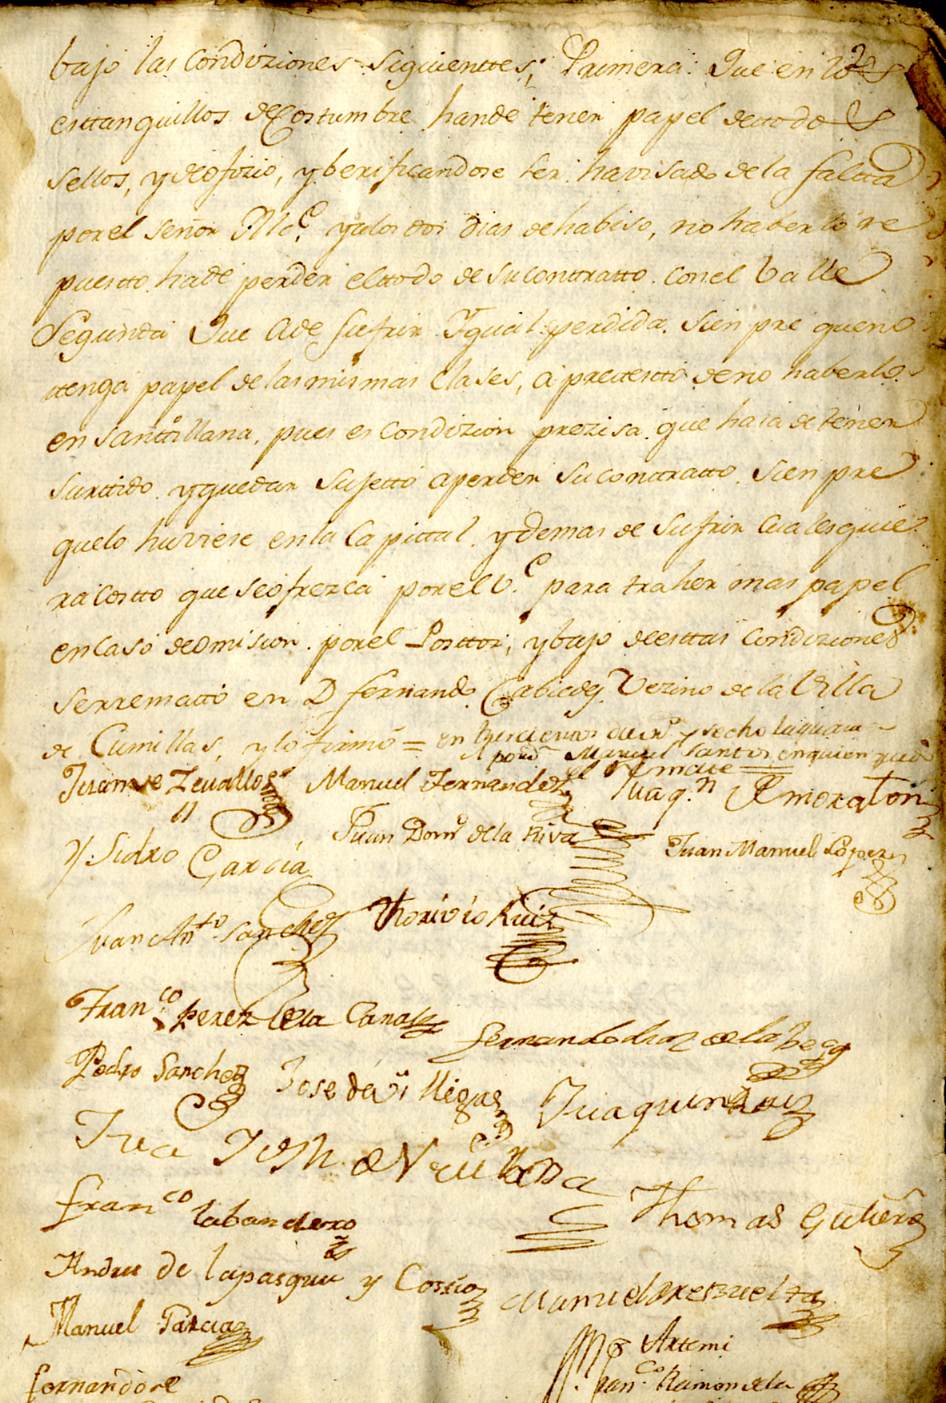 bajo las Condiziones siguienttes; Primera Que en los
esttanquillos de Costumbre hande tener papel de ttodos
sellos, y de ofizio, y berificandose ser havisado de la faltta
por el señor Alc.e y a los dos dias de habiso, no haberlo re
puestto hade perder el ttodo de su contratto con el Valle
Segunda Que ade sufrir Ygual perdida, sienpre que no
ttenga papel de las mismas Clases, a pretestto de no haberlo
en Santtillana, pues es Condizion prezisa que haia de tener
surttido y quedar sujetto a perder su contratto, sienpre
que lo huviese en la Capittal, y demas de sufrir Cualesquie
ra Costto que se ofrezca por el V.e para traher mas papel
en Caso de omision por el Posttor; y bajo de esttas Condiziones
se rrematto en D Fernando Cabiedes Vezino de la Villa
de Cumillas, y lo firmó =
Manuel Santos en quien quedó
Juan de Zevallos Manuel Fernandez Juaq.n Moraton
Ysidro Garcia Juan Dom.o de la Riva Juan Manuel Lopez
Juan Ant.o Sanchez Thorivio Ruiz
Fran.co Perez de la Canal Fernando diaz de la Vega
Pedro Sanchez Jose de Villegas Juaquin Ruiz
Fran.co Labandero Thomas Gutierrez
Andres de Lapasqua y Cossio Manuel
Manuel Garcia
Fran.co Ramon de la
Fernando de